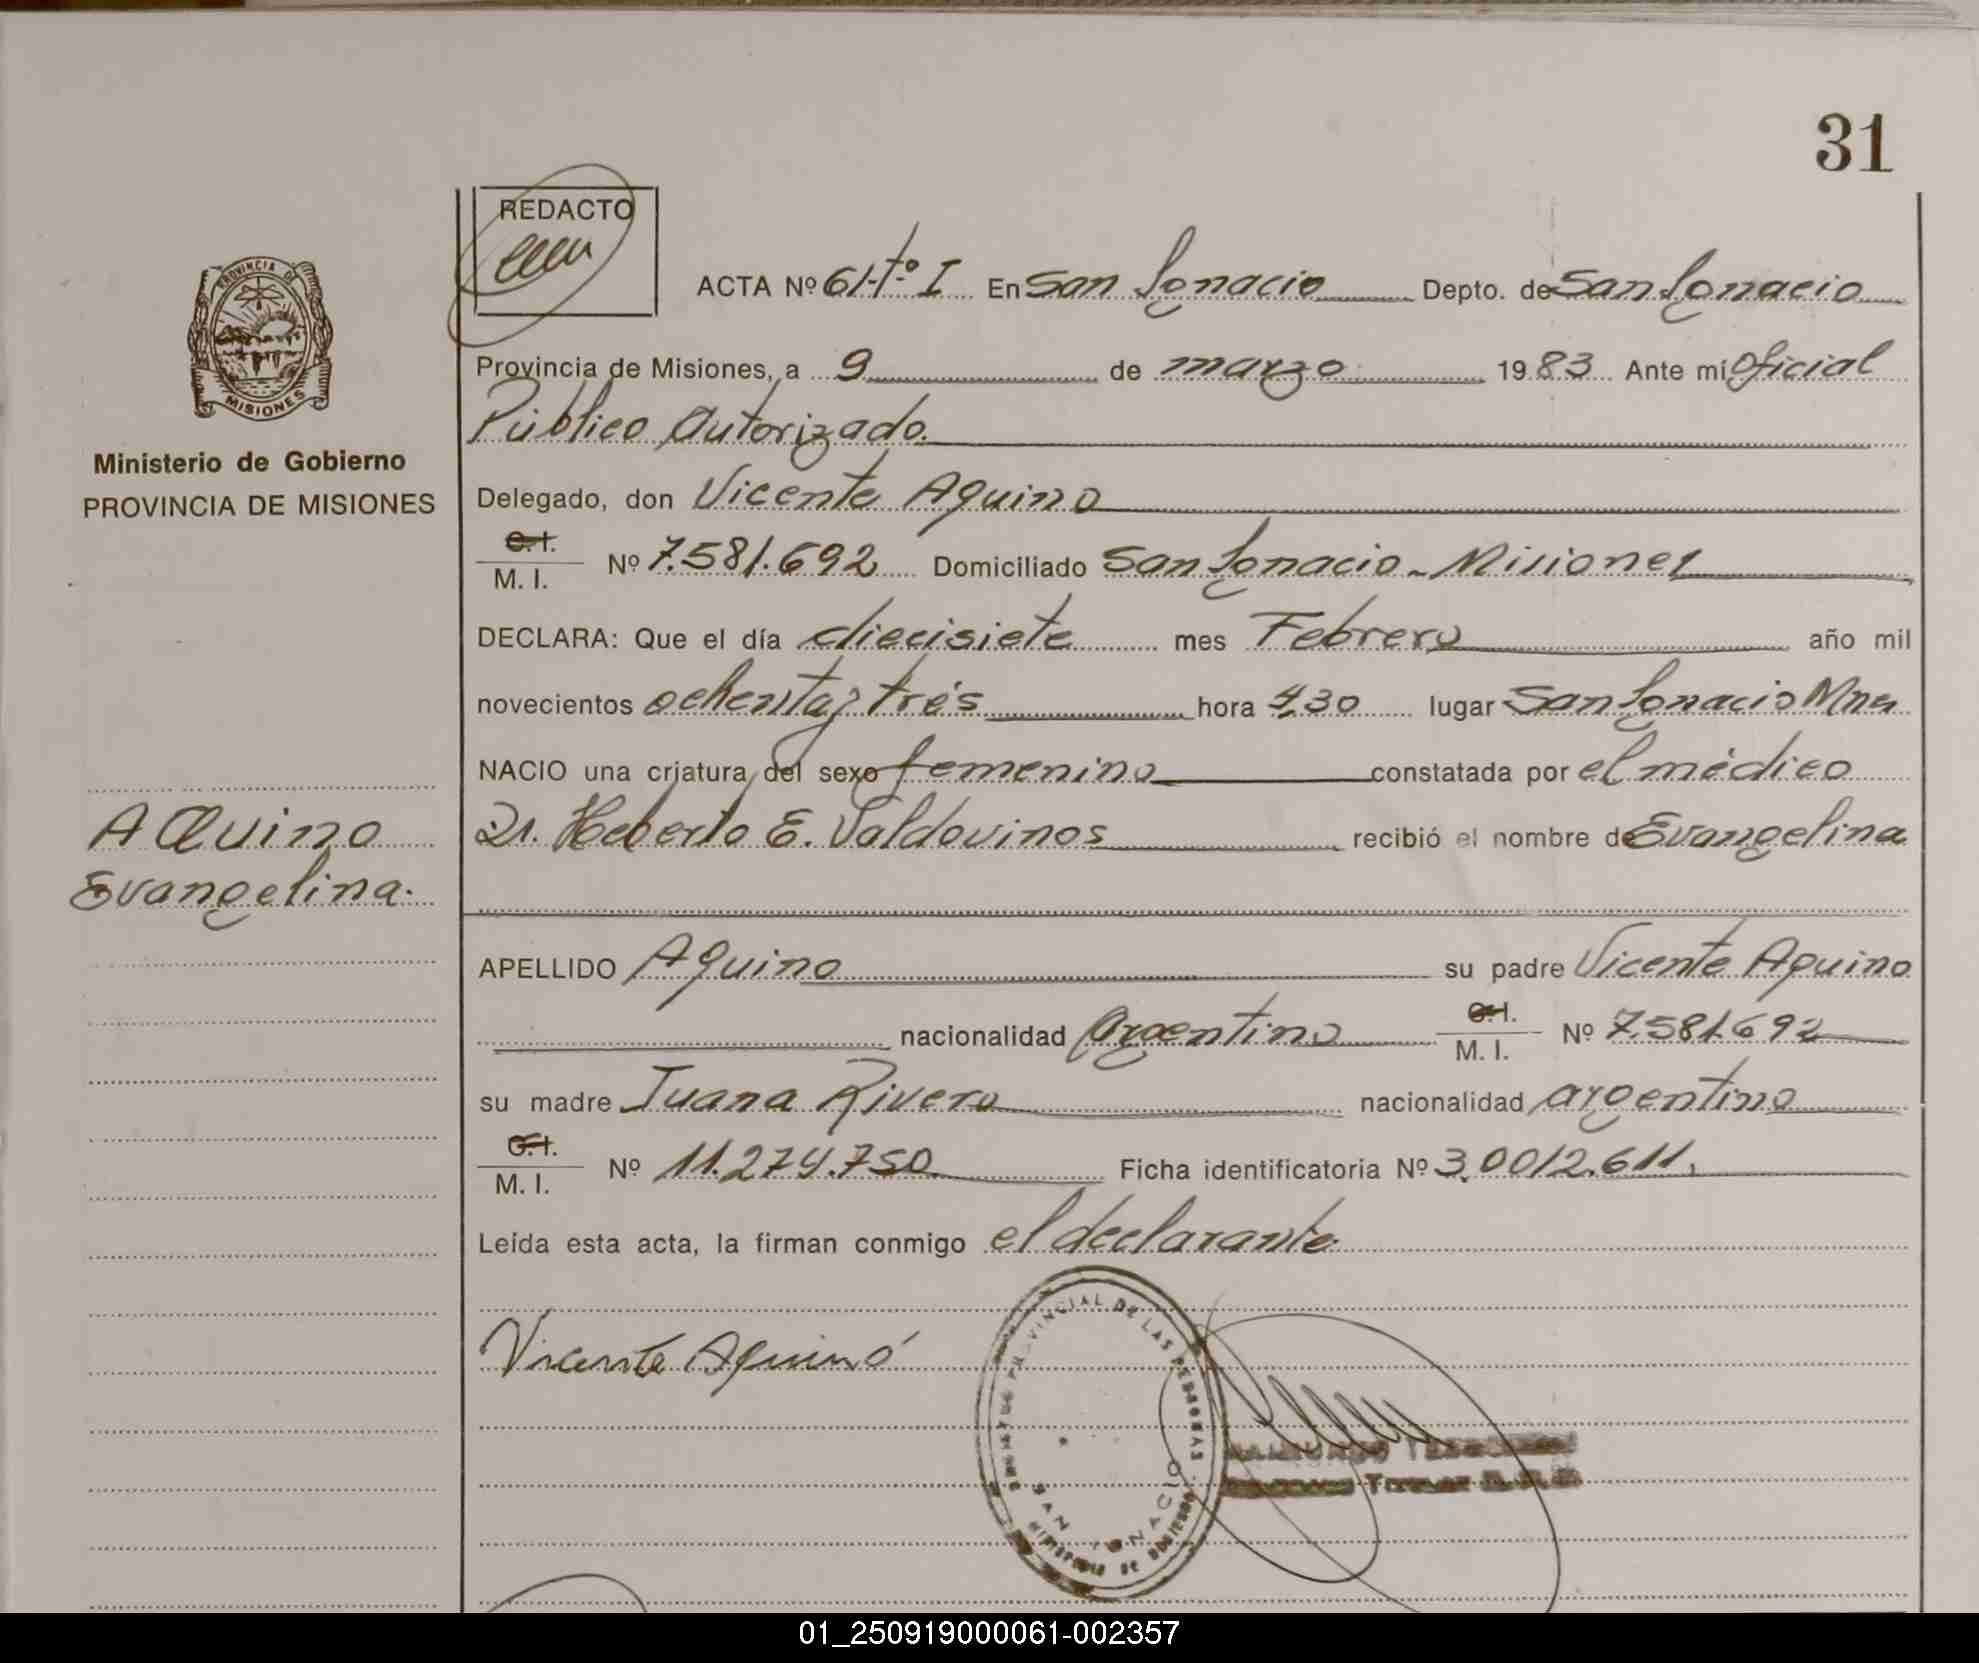 31
REDACTO
ACTA Nº 61-tº I En San Ignacio Depto. de San Ignacio
Provincia de Misiones, a 9 de marzo 1983 Ante mi Oficial
Público Autorizado.
PROVINCIA DE
MISIONES
Ministerio de Gobierno
PROVINCIA DE MISIONES
Delegado, don Vicente Aquino
C.I.
M. I. Nº 7.581.692 Domiciliado San Ignacio - Misiones
DECLARA: Que el día diecisiete mes Febrero año mil
novecientos ochenta y trés hora 4,30 lugar San Ignacio Mnes
NACIO una criatura del sexo femenino constatada por el médico
Aquino
Evangelina.
Dr. Heberto E. Valdovinos recibió el nombre de Evangelina
APELLIDO Aquino su padre Vicente Aquino
nacionalidad Argentino C.I.
M. I. Nº 7.581.692
su madre Juana Rivero nacionalidad argentino
C.I.
M. I. Nº 11.274.750 Ficha identificatoria Nº 3.0012.611.
Leída esta acta, la firman conmigo el declarante.
Vicente Aquino
PROVINCIAL DE LAS PERSONAS
SAN IGNACIO
MINISTERIO DE GOBIERNO
01_250919000061-002357